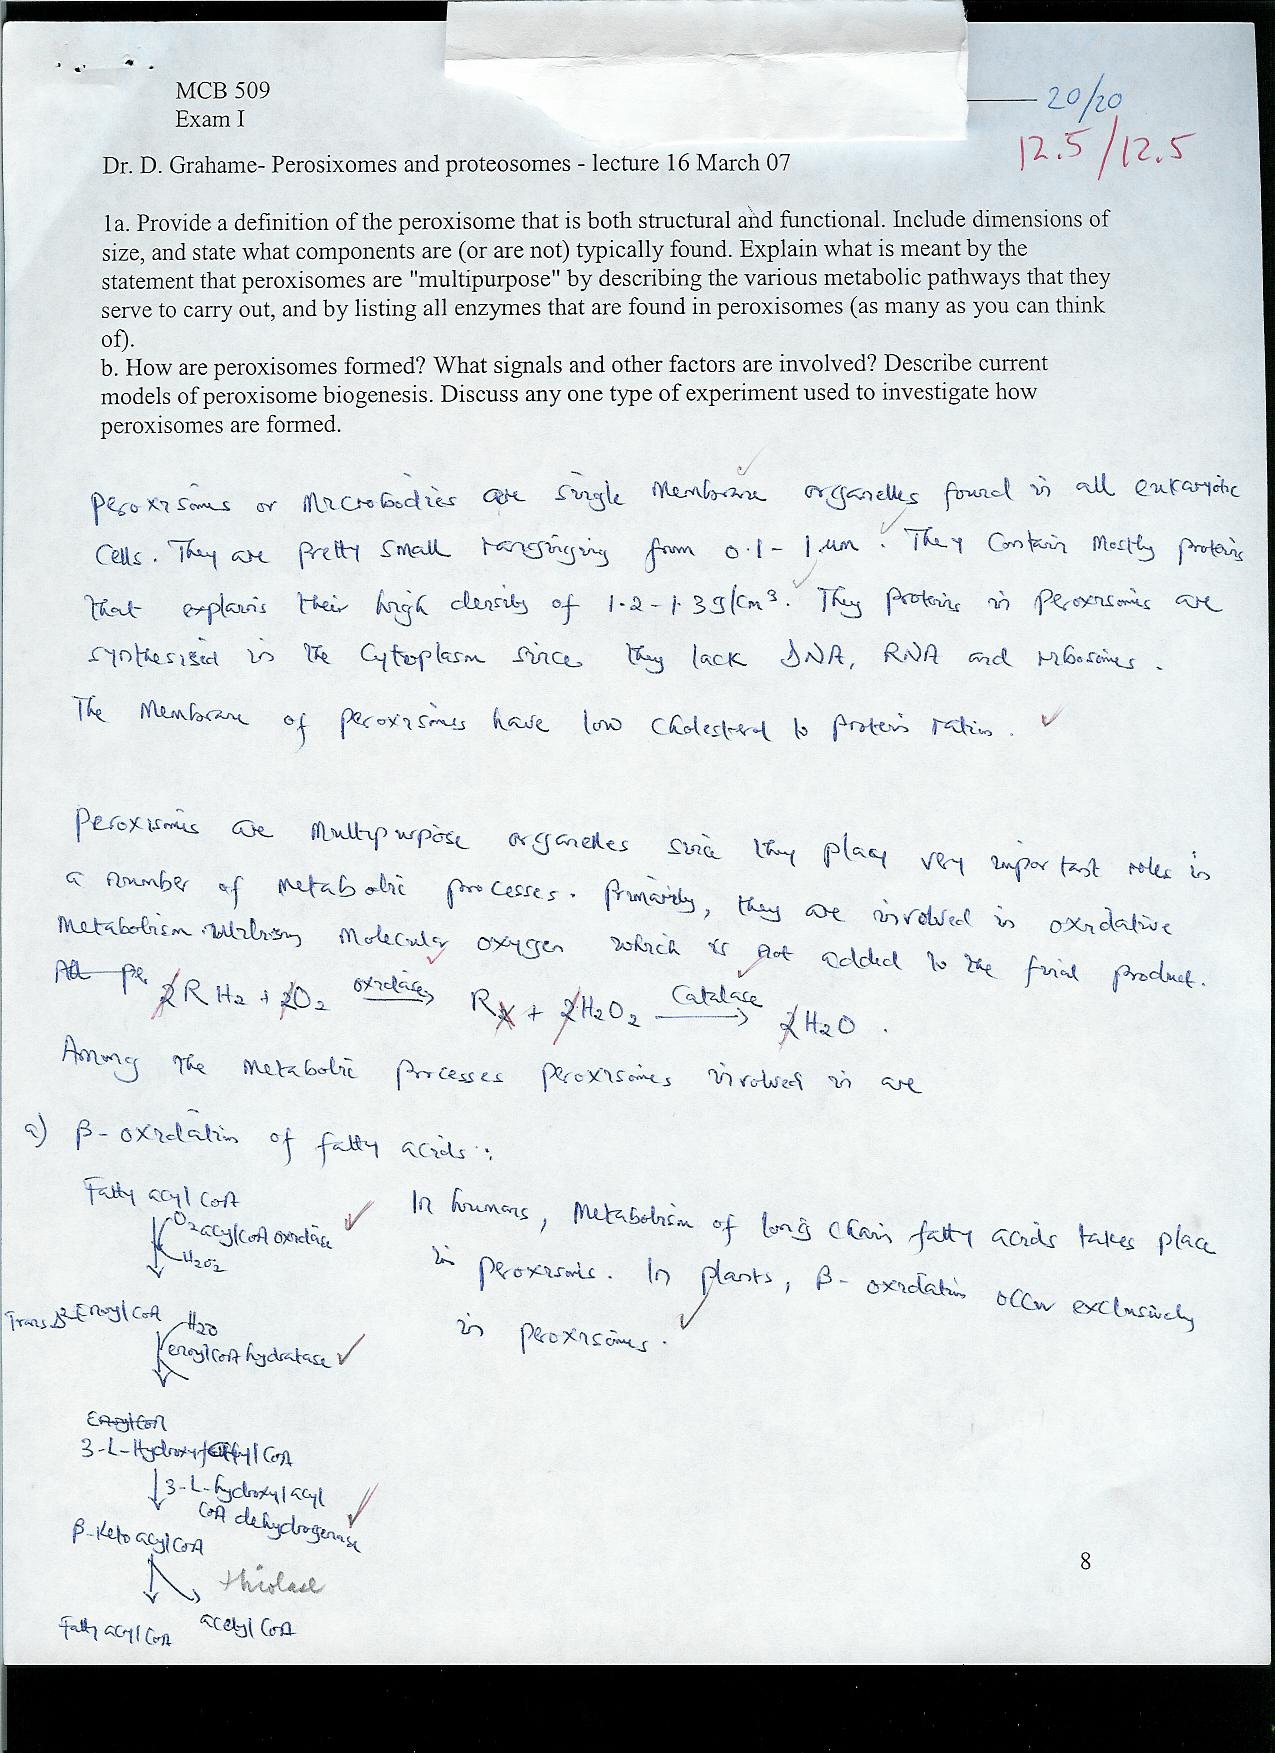 MCB 509
20/20
Exam I
12.5/12.5
Dr. D. Grahame- Perosixomes and proteosomes - lecture 16 March 07
1a. Provide a definition of the peroxisome that is both structural and functional. Include dimensions of
size, and state what components are (or are not) typically found. Explain what is meant by the
statement that peroxisomes are "multipurpose" by describing the various metabolic pathways that they
serve to carry out, and by listing all enzymes that are found in peroxisomes (as many as you can think
of).
b. How are peroxisomes formed? What signals and other factors are involved? Describe current
models of peroxisome biogenesis. Discuss any one type of experiment used to investigate how
peroxisomes are formed.
Peroxisomes or Microbodies are single Membrane organelles found in all eukaryotic
Cells. They are pretty small from 0.1 - 1 µm. They Contain Mostly proteins
that explains their high density of 1.2 - 1.3 g/cm³. They proteins in peroxisomes are
synthesised in the Cytoplasm since they lack DNA, RNA and ribosomes.
The Membrane of peroxisomes have low Cholesterol to protein ratios.
Peroxisomes are Multipurpose organelles since they play very important roles in
a number of Metabolic processes. Primarily, they are involved in oxidative
Metabolism utilising Molecular oxygen which is not added to the final product.
2RH2 + 2O2 oxidase → R + 2H2O2 Catalase → 2H2O.
Among the Metabolic processes peroxisomes involved in are
a) β-oxidation of fatty acids:
Fatty acyl CoA
O2 acyl CoA oxidase
H2O2
In humans, Metabolism of long chain fatty acids takes place
in peroxisomes. In plants, β-oxidation occur exclusively
in peroxisomes.
Trans Δ²-Enoyl CoA
H2O
enoyl CoA hydratase
Enoyl CoA
3-L-Hydroxy CoA
3-L-hydroxyl acyl
CoA dehydrogenase
β-Keto acyl CoA
thiolase
Fatty acyl CoA acetyl CoA
8